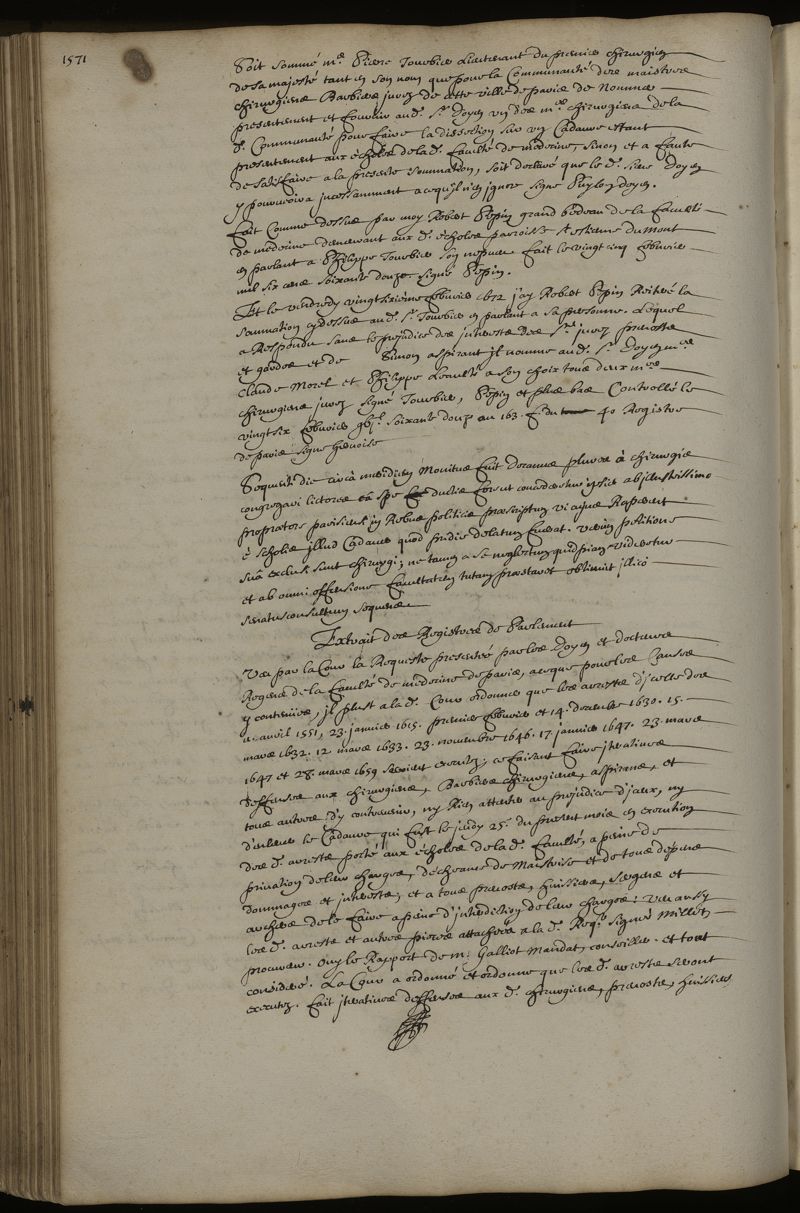 1571
Soit sommé me Pierre Tourbier Lieutenant du premier chirurgien
de sa majesté tant en son nom que pour la Communauté des maistres
chirurgiens Barbiers jurez de cette ville de paris de nommer
presentement et fournir aud. Sr Doyen un des mes chirurgiens de la
d. Communauté pour faire la dissection sur un Cadavre estant
presentement aux écholes de la d. faculté de medecine, sinon et a faute
de satisfaire a la presente sommation, soit declaré que le d. sieur Doyen
y pourvoira incessamment a ce qu'il n'en ignore signé Puylon doyen.
Fait comme dessus par moy Robert Pepin grand bedeau de la faculté
de medecine demeurant aux d. écholes parroisse St Estienne du mont
en parlant a Philippe Tourbier son nepveu fait le vingt cinq febvrier
mil six cens soixante douze. signé Pepin.
Et le vendredy vingt sixieme febvrier 1672 j'ay Robert Pepin Reiteré la
sommation cy dessus aud. Sr Tourbier en parlant a sa personne. Lequel
a Respondu sans le prejudice des interests des Srs jurez prevosts
et gardes et de Simon aspirant il nomme aud. Sr Doyen mes
Claude Morel et Philippe a son choix tous deux mes
chirurgiens jurez signé Tourbier, Pepin et plus bas Controllé le
vingt six febvrier gbjc soixante douze au 163. f. du 40 Registre
de paris signé
Sequenti die circà meridiem Monitus fuit decanus plures è chirurgis
congregari lictores spe ductis forent concedendum ipsis ab
proprætore parisiensi in Rebus politicis præscriptum vi atque Raperent
è scholis illud Cadaver quod pridie delatum fuerat. verùm petitione
suâ exclusi sunt chirurgi; ne tamen a se neglectum quidpiam videretur
et ab omni offensione facultatem tutam præstaret obtinuit illico
senatusconsultum sequens
Extrait des Registres de Parlement
Veu par la Cour la Requeste presentée par les Doyen et docteurs
Regens de la faculté de medecine de paris, a ce que pour les Causes
y contenües, il plust a la d. Cour ordonner que les arrests d'icelle des
avril 1551, 23. janvier 1615. premier febvrier et 14. decembre 1630. 15.
mars 1632. 12. mars 1633. 23. novembre 1646. 17. janvier 1647. 23. mars
1647 et 28. mars 1659 seroient executez; ce faisant faire iteratives
deffenses aux chirurgiens, Barbiers chirurgiens, aspirans, et
tous autres d'y contrevenir, ny Rien attenter au prejudice d'iceux, ny
d'enlever le Cadavre qui fust le jeudy 25e du present mois en execution
des d. arrests porté aux écholes de la d. faculté, a peine de
privation de leur charges, decheance de Maistrise et de tous depens
dommages et interests; et a tous prevosts, huissiers, sergens et
archers de le faire a peine d'interdiction de leur charges: veu aussy
les d. arrests et autres pieces attachées a la d. Reqte signée Millet
procureur. Ouy le Rapport de me Galliot Mandat, conseiller. et tout
consideré. La Cour a ordonné et ordonne que les d. arrests seront
executez. Fait iteratives deffenses aux d. chirurgiens, prevosts, huissiers